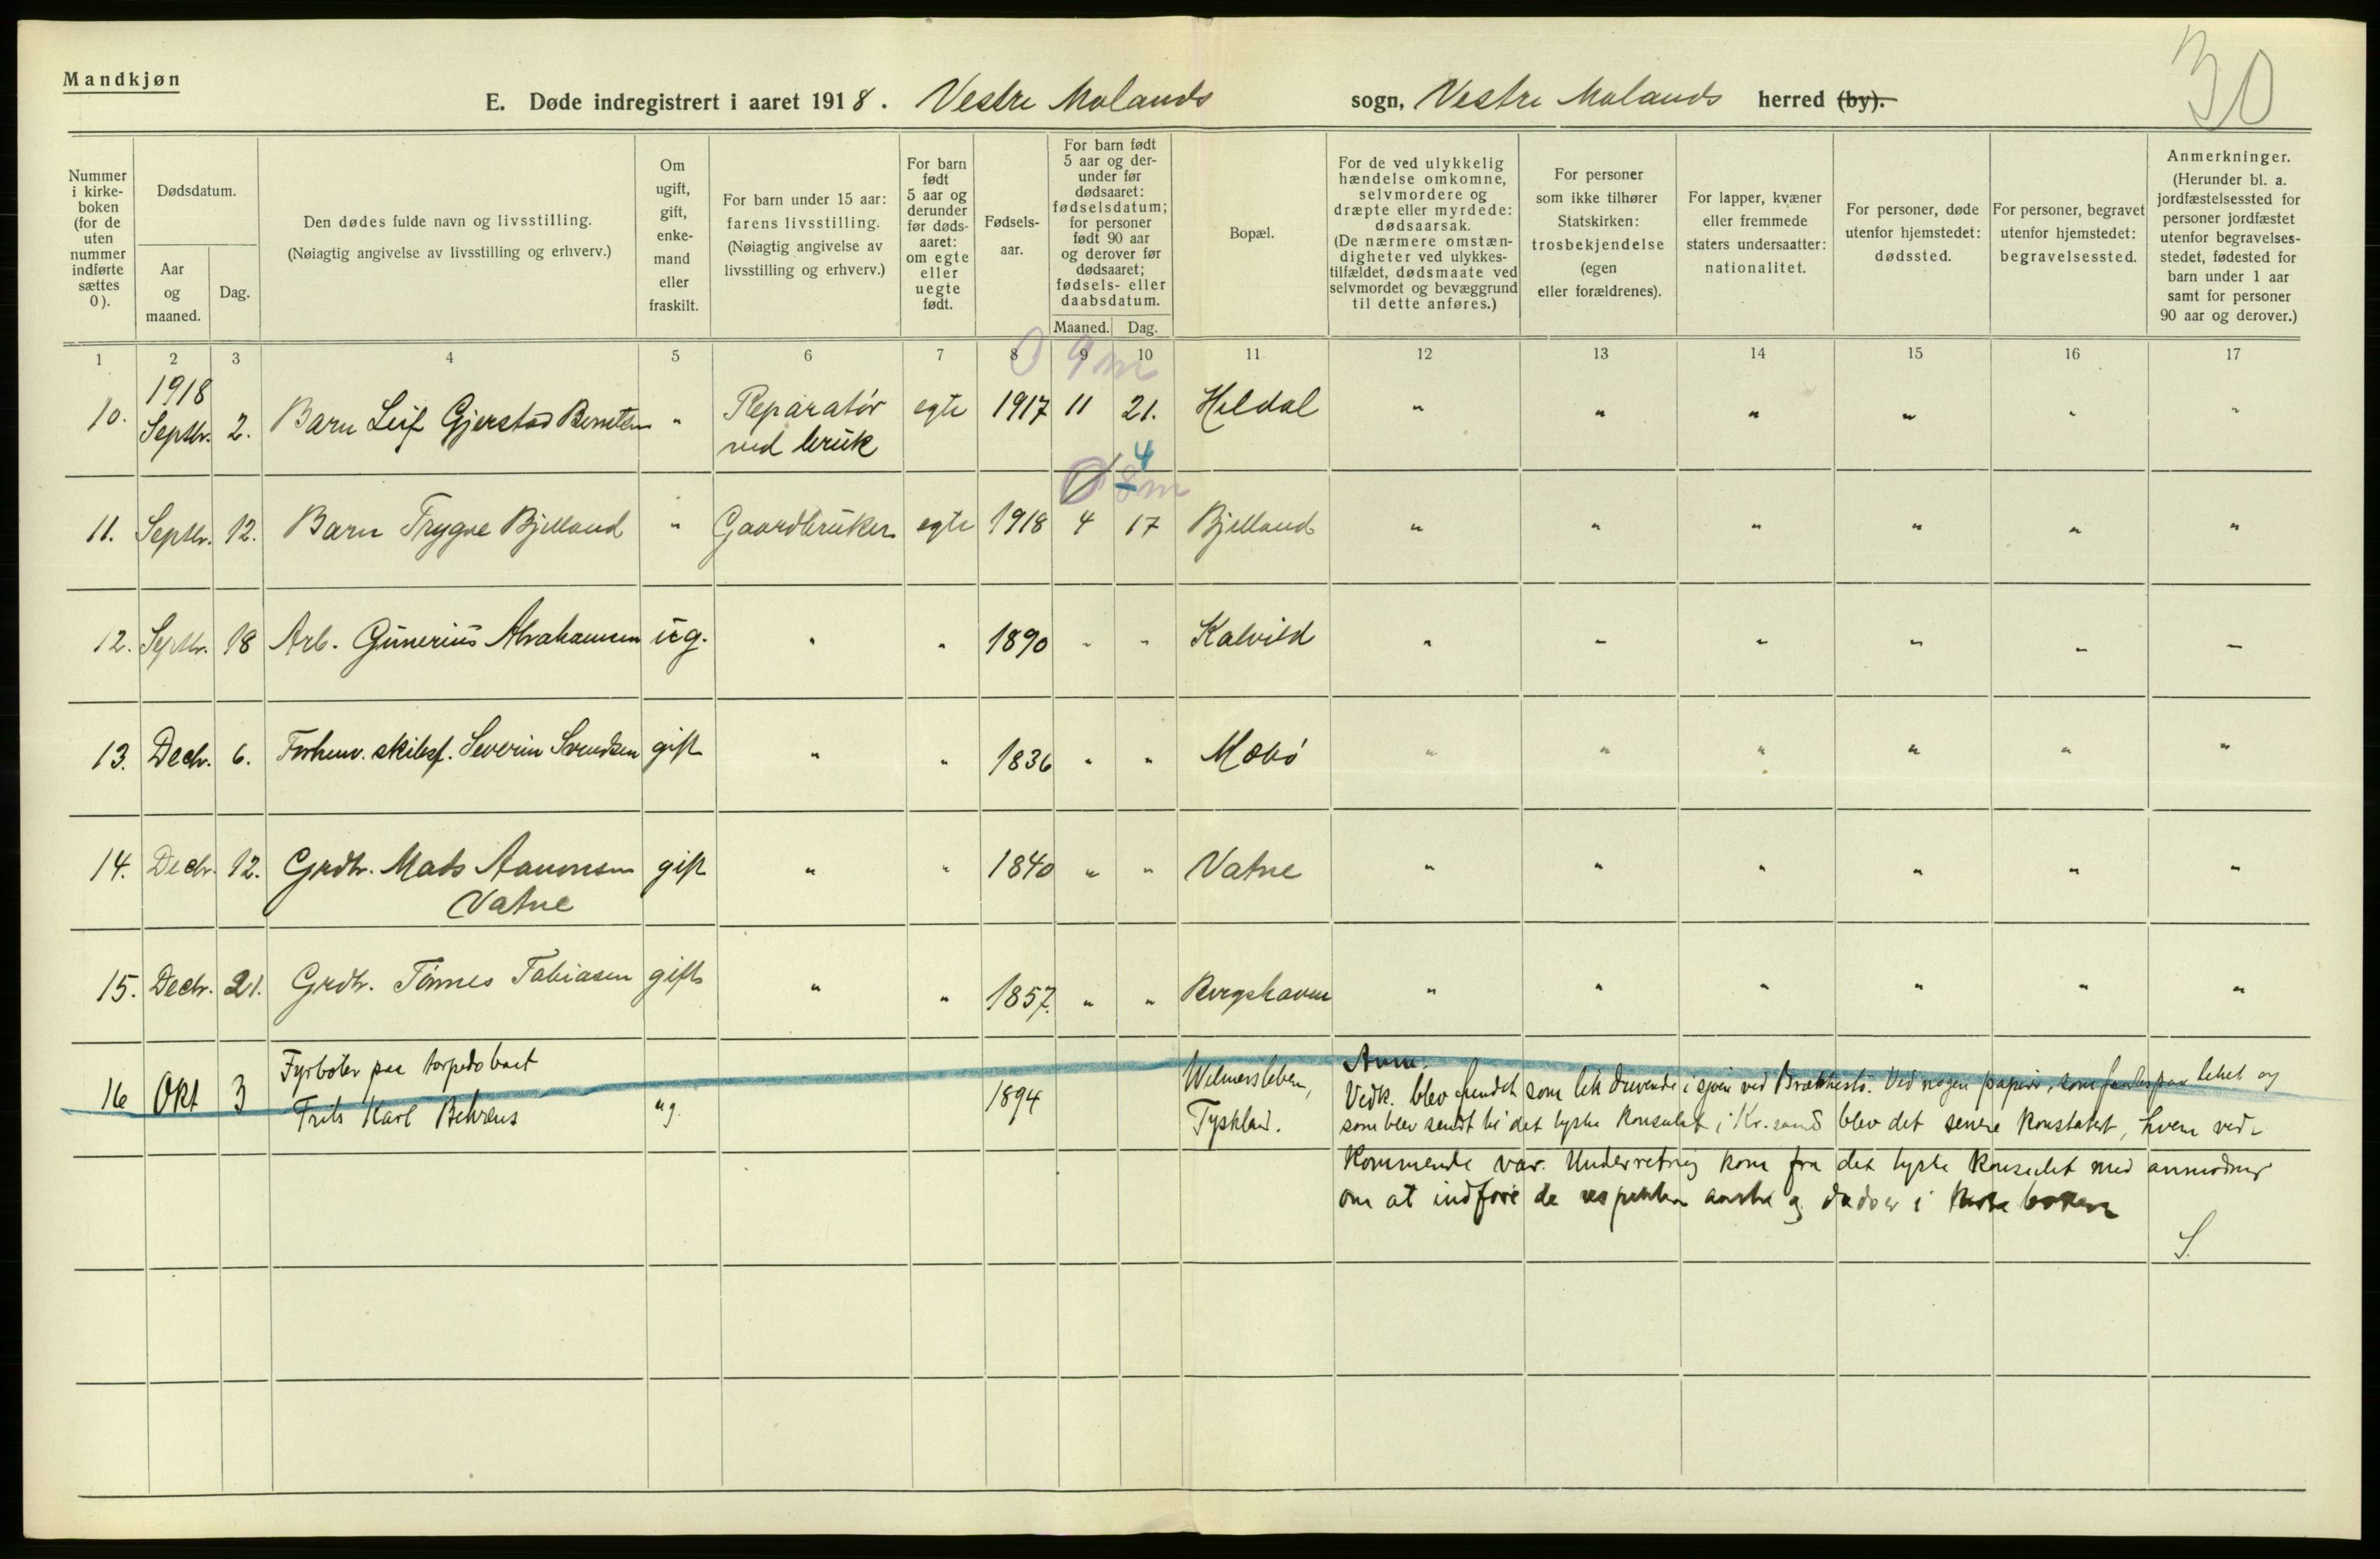 Mandkjøn
30
E. Døde indregistrert i aaret 1918. Vestre Molands sogn, Vestre Molands herred (by).
Nummer i kirkeboken (for de uten nummer indførte sættes 0).
Dødsdatum.
Aar og maaned.
Dag.
Den dødes fulde navn og livsstilling.
(Nøiagtig angivelse av livsstilling og erhverv.)
Om ugift, gift, enkemand eller fraskilt.
For barn under 15 aar: farens livsstilling.
(Nøiagtig angivelse av livsstilling og erhverv.)
For barn født 5 aar og derunder før dødsaaret: om egte eller uegte født.
Fødselsaar.
For barn født 5 aar og derunder før dødsaaret: fødselsdatum; for personer født 90 aar og derover før dødsaaret; fødsels- eller daabsdatum.
Maaned. Dag.
Bopæl.
For de ved ulykkelig hændelse omkomne, selvmordere og dræpte eller myrdede: dødsaarsak.
(De nærmere omstændigheter ved ulykkestilfældet, dødsmaate ved selvmordet og bevæggrund til dette anføres.)
For personer som ikke tilhører Statskirken: trosbekjendelse (egen eller forældrenes).
For lapper, kvæner eller fremmede staters undersaatter: nationalitet.
For personer, døde utenfor hjemstedet: dødssted.
For personer, begravet utenfor hjemstedet: begravelsessted.
Anmerkninger.
(Herunder bl. a. jordfæstelsessted for personer jordfæstet utenfor begravelsesstedet, fødested for barn under 1 aar samt for personer 90 aar og derover.)
1 2 3 4 5 6 7 8 9 10 11 12 13 14 15 16 17
0 9 m
1918
10. Septbr. 2. Barn Leif Gjerstad Berntsen " Reparatør ved bruk egte 1917 11 21. Heldal " " " " " "
0 8 m 4
11. Septbr. 12. Barn Trygve Bjelland " Gaardbruker egte 1918 4 17 Bjelland " " " " " "
12. Septbr. 18 Arb. Gunerius Abrahamsen ug. " " 1890 " " Kalvild " " " " " "
13. Decbr. 6. Forhenv. skibsf. Severin Svendsen gift " " 1836 " " Mæbø " " " " " "
14. Decbr. 12. Grdbr. Mads Aanonsen Vatne gift " " 1840 " " Vatne " " " " " "
15. Decbr. 21. Grdbr. Tønnes Tobiasen gift " " 1857. " " Bergshaven " " " " " "
16 Okt 3 Fyrbøter paa torpedobaat
Frits Karl Behrens ug. 1894 Wilmersleben, Tyskland.
Anm.
Vedk. blev fundet som lik drivende i sjøen ved Brækkestø. Ved nogen papirer, som fandtes paa liket og
som blev sendt til det tyske konsulat i Kr.sand blev det senere konstatert, hvem ved-
kommende var. Underretning kom fra det tyske konsulat med anmodning
om at indføre de respektive navne og data i kirkeboken
S.